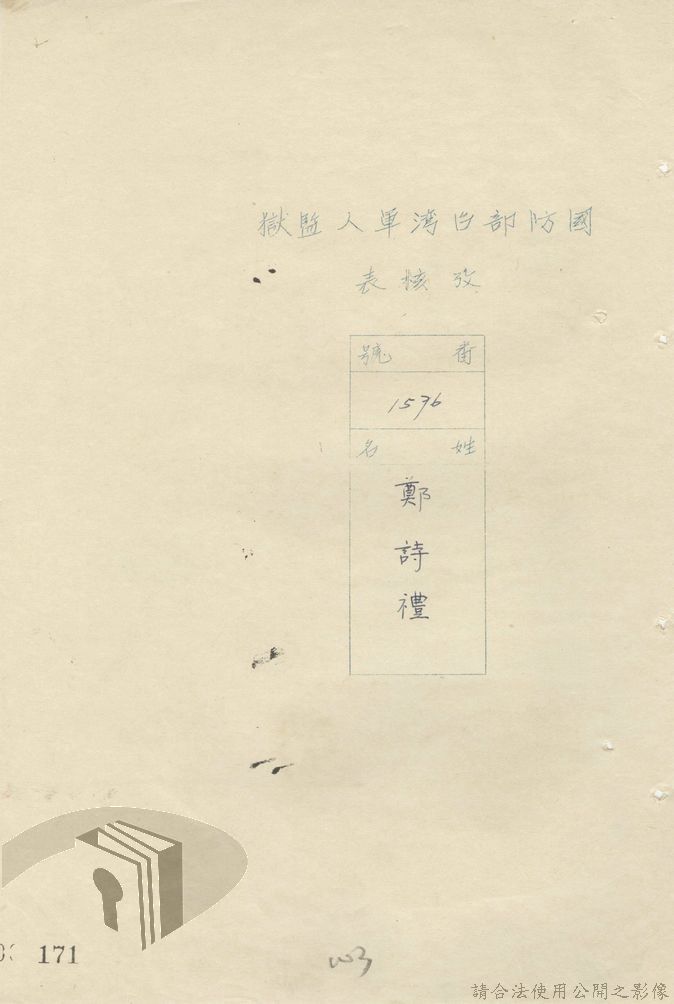 國防部台湾軍人監獄
攷核表
番號
1536
姓名
鄭詩禮
171
請合法使用公開之影像